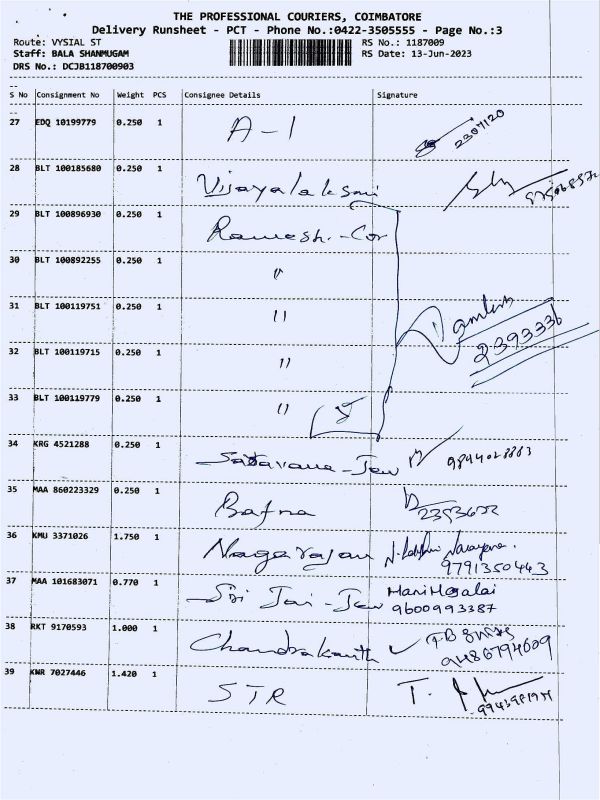 THE PROFESSIONAL COURIERS, COIMBATORE
Delivery Runsheet - PCT - Phone No.:0422-3505555 - Page No.:3
Route: VYSIAL ST RS No.: 1187009
Staff: BALA SHANMUGAM RS Date: 13-Jun-2023
DRS No.: DCJB118700903
S No Consignment No Weight PCS Consignee Details Signature
27 EDQ 10199779 0.250 1 A-1 2397120
28 BLT 100185680 0.250 1 Vijayalaksmi
29 BLT 100896930 0.250 1 Ramesh.-Cor
30 BLT 100892255 0.250 1 "
31 BLT 100119751 0.250 1 "
32 BLT 100119715 0.250 1 " 2393336
33 BLT 100119779 0.250 1 " 5
34 KRG 4521288 0.250 1
35 MAA 860223329 0.250 1 Bafna
36 KMU 3371026 1.750 1 Nagarajan 9791350443
37 MAA 101683071 0.770 1 Sri Jai-Jew 9600993387
38 RKT 9170593 1.000 1 Chandrakanth 9486794609
39 KWR 7027446 1.420 1 STR T.